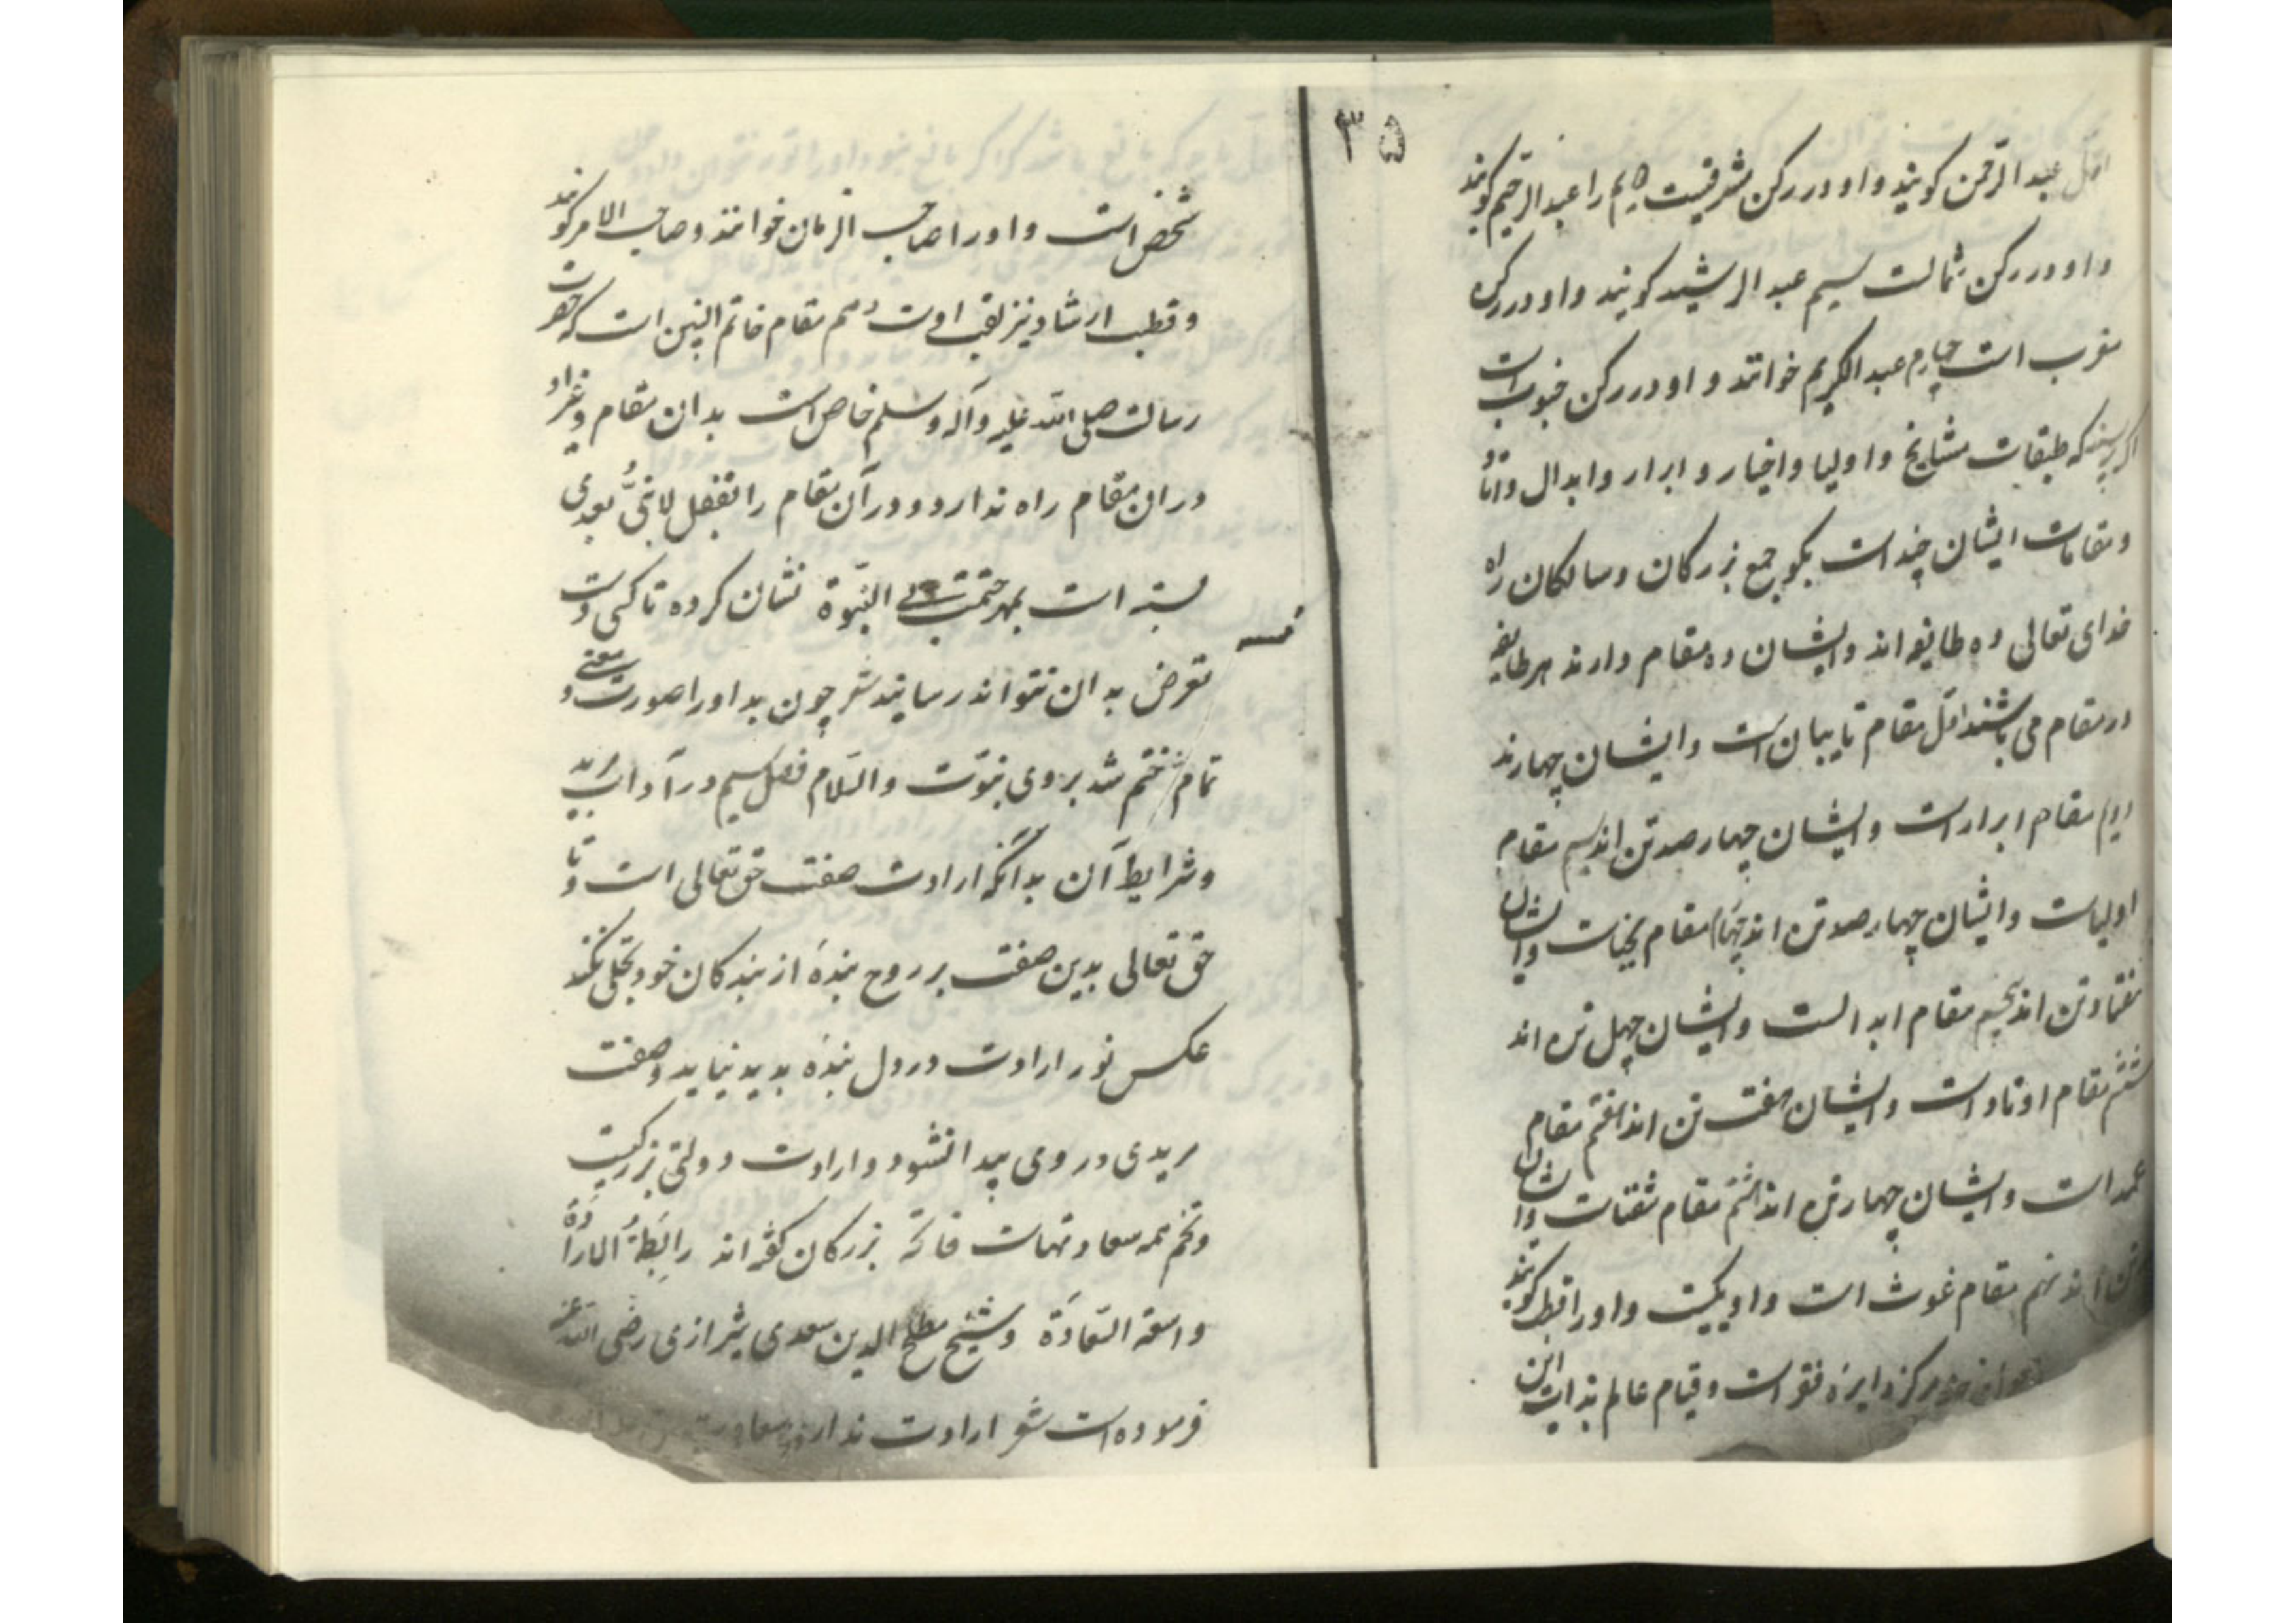 اول عبد الرحمن کویند و او در رکن مشرقیست دویم را عبد الرحیم کویند
و او در رکن شمالست سیم عبد الرشید کویند و او در رکن
مغرب است چهارم عبد الکریم خوانند و او در رکن جنوب است
اکر پرسند که طبقات مشایخ و اولیا و اخیار و ابرار و ابدال و اوتاد
و مقامات ایشان چند است بکو جمع بزرکان و سالکان راه
خدای تعالی ده طایفه اند و ایشان ده مقام دارند هر طایفه
در مقام می باشند اول مقام تایبان است و ایشان چهارند
دویم مقام ابرار است و ایشان چهار صد تن اند سیم مقام
اولیاست و ایشان چهار صد تن اند چهارم مقام نجباست و ایشان
هفتاد تن اند پنجم مقام ابدالست و ایشان چهل تن اند
ششم مقام اوتاد است و ایشان هفت تن اند هفتم مقام
عمد است و ایشان چهار تن اند هشتم مقام نقباست و ایشان
تن اند نهم مقام غوث است و او یکیست و او را قطب کویند
مرکز دایره فقر است و قیام عالم بذات این
۳۵
شخص است و او را صاحب الزمان خوانند و صاحب الامر کویند
و قطب ارشاد نیز لقب اوست دهم مقام خاتم النبیین است که حضرت
رسالت صلی الله علیه وآله وسلم خاص است بدان مقام و غیر او
در ان مقام راه ندارد و در آن مقام را بقفل لا نبی بعدی
بسته است بمهر ختمت بی النبوة نشان کرده تا کسی دست
تعرض بدان نتواند رسانید شعر چون بد او را صورت و معنی
تمام ختم شد بروی نبوت والسلام فصل سیم در آداب مرید
و شرایط آن بدانکه ارادت صفت حق تعالی است و تا
حق تعالی بدین صفت بر روح بنده از بندکان خود تجلی نکند
عکس نور ارادت در دل بنده بدید نیاید و صفت
مریدی در وی پیدا نشود و ارادت دولتی بزرکیست
و تخم همه سعادتهاست بزرکان کفته اند رابطة الارادة
واسعة السعادة و شیخ مصلح الدین سعدی شیرازی رضی الله عنه
فرموده است شعر ارادت نداری سعادت